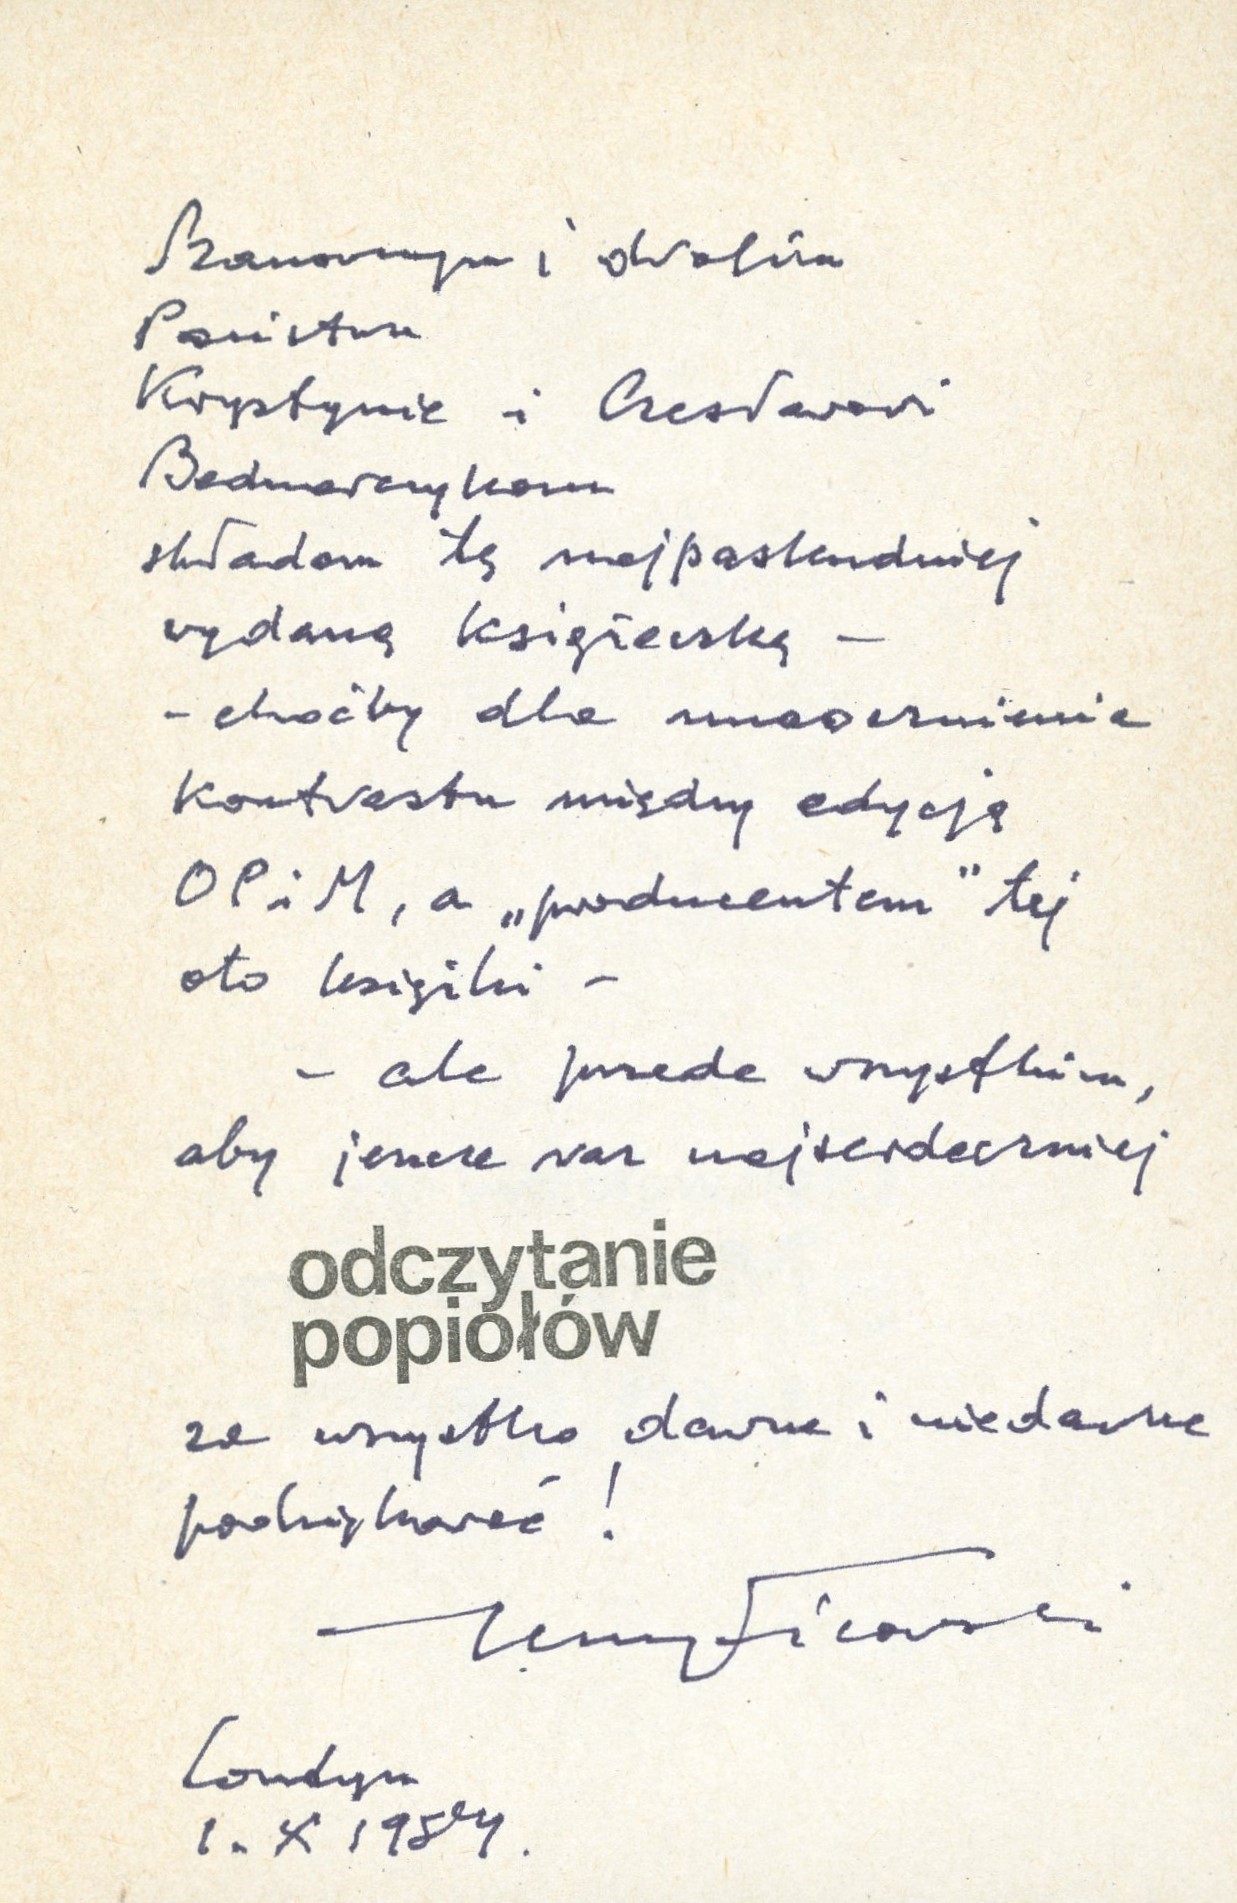 Szanownym i drogim
Państwu
Krystynie i Czesławowi
Bednarczykom
składam tę najpaskudniej
wydaną książeczkę –
– choćby dla unaocznienia
kontrastu między edycją
OPiM, a „producentem” tej
oto książki –
– ale przede wszystkim,
aby jeszcze raz najserdeczniej
odczytanie
popiołów
za wszystko dawne i niedawne
podziękować!
Jerzy Ficowski
Londyn
1. X 1984.